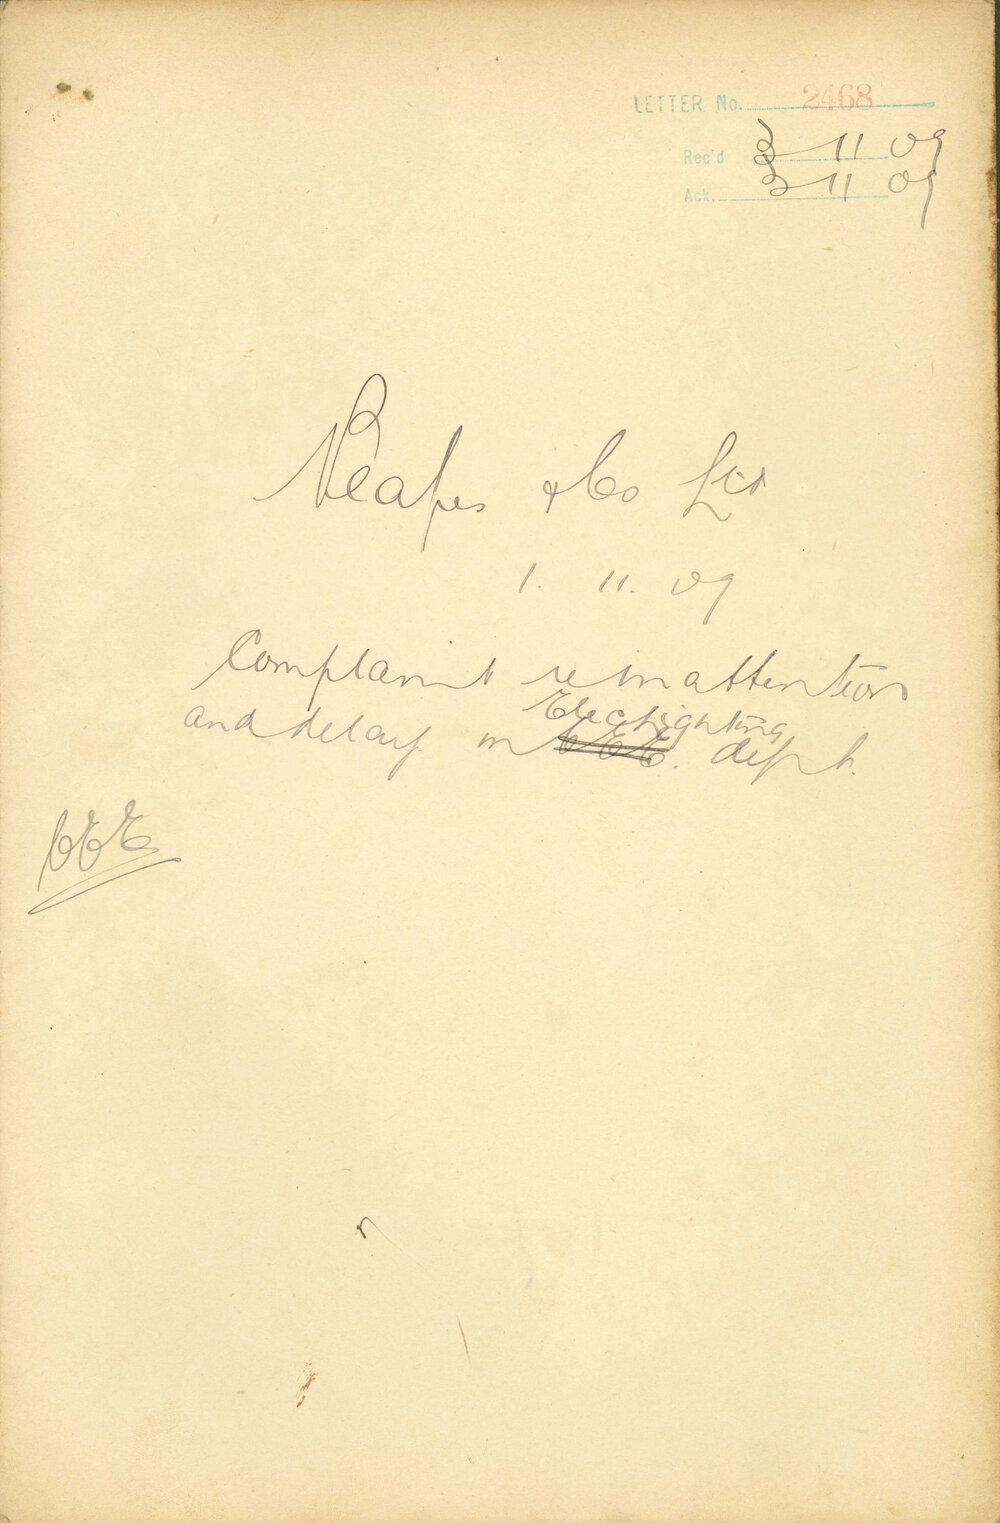 LETTER No. 2468
Rec'd 3 11 09
Ack. 3 11 09
& Co Ltd
1. 11. 09
Complaint re inattention
and delay in Elec lighting CEE. dept.
CEE